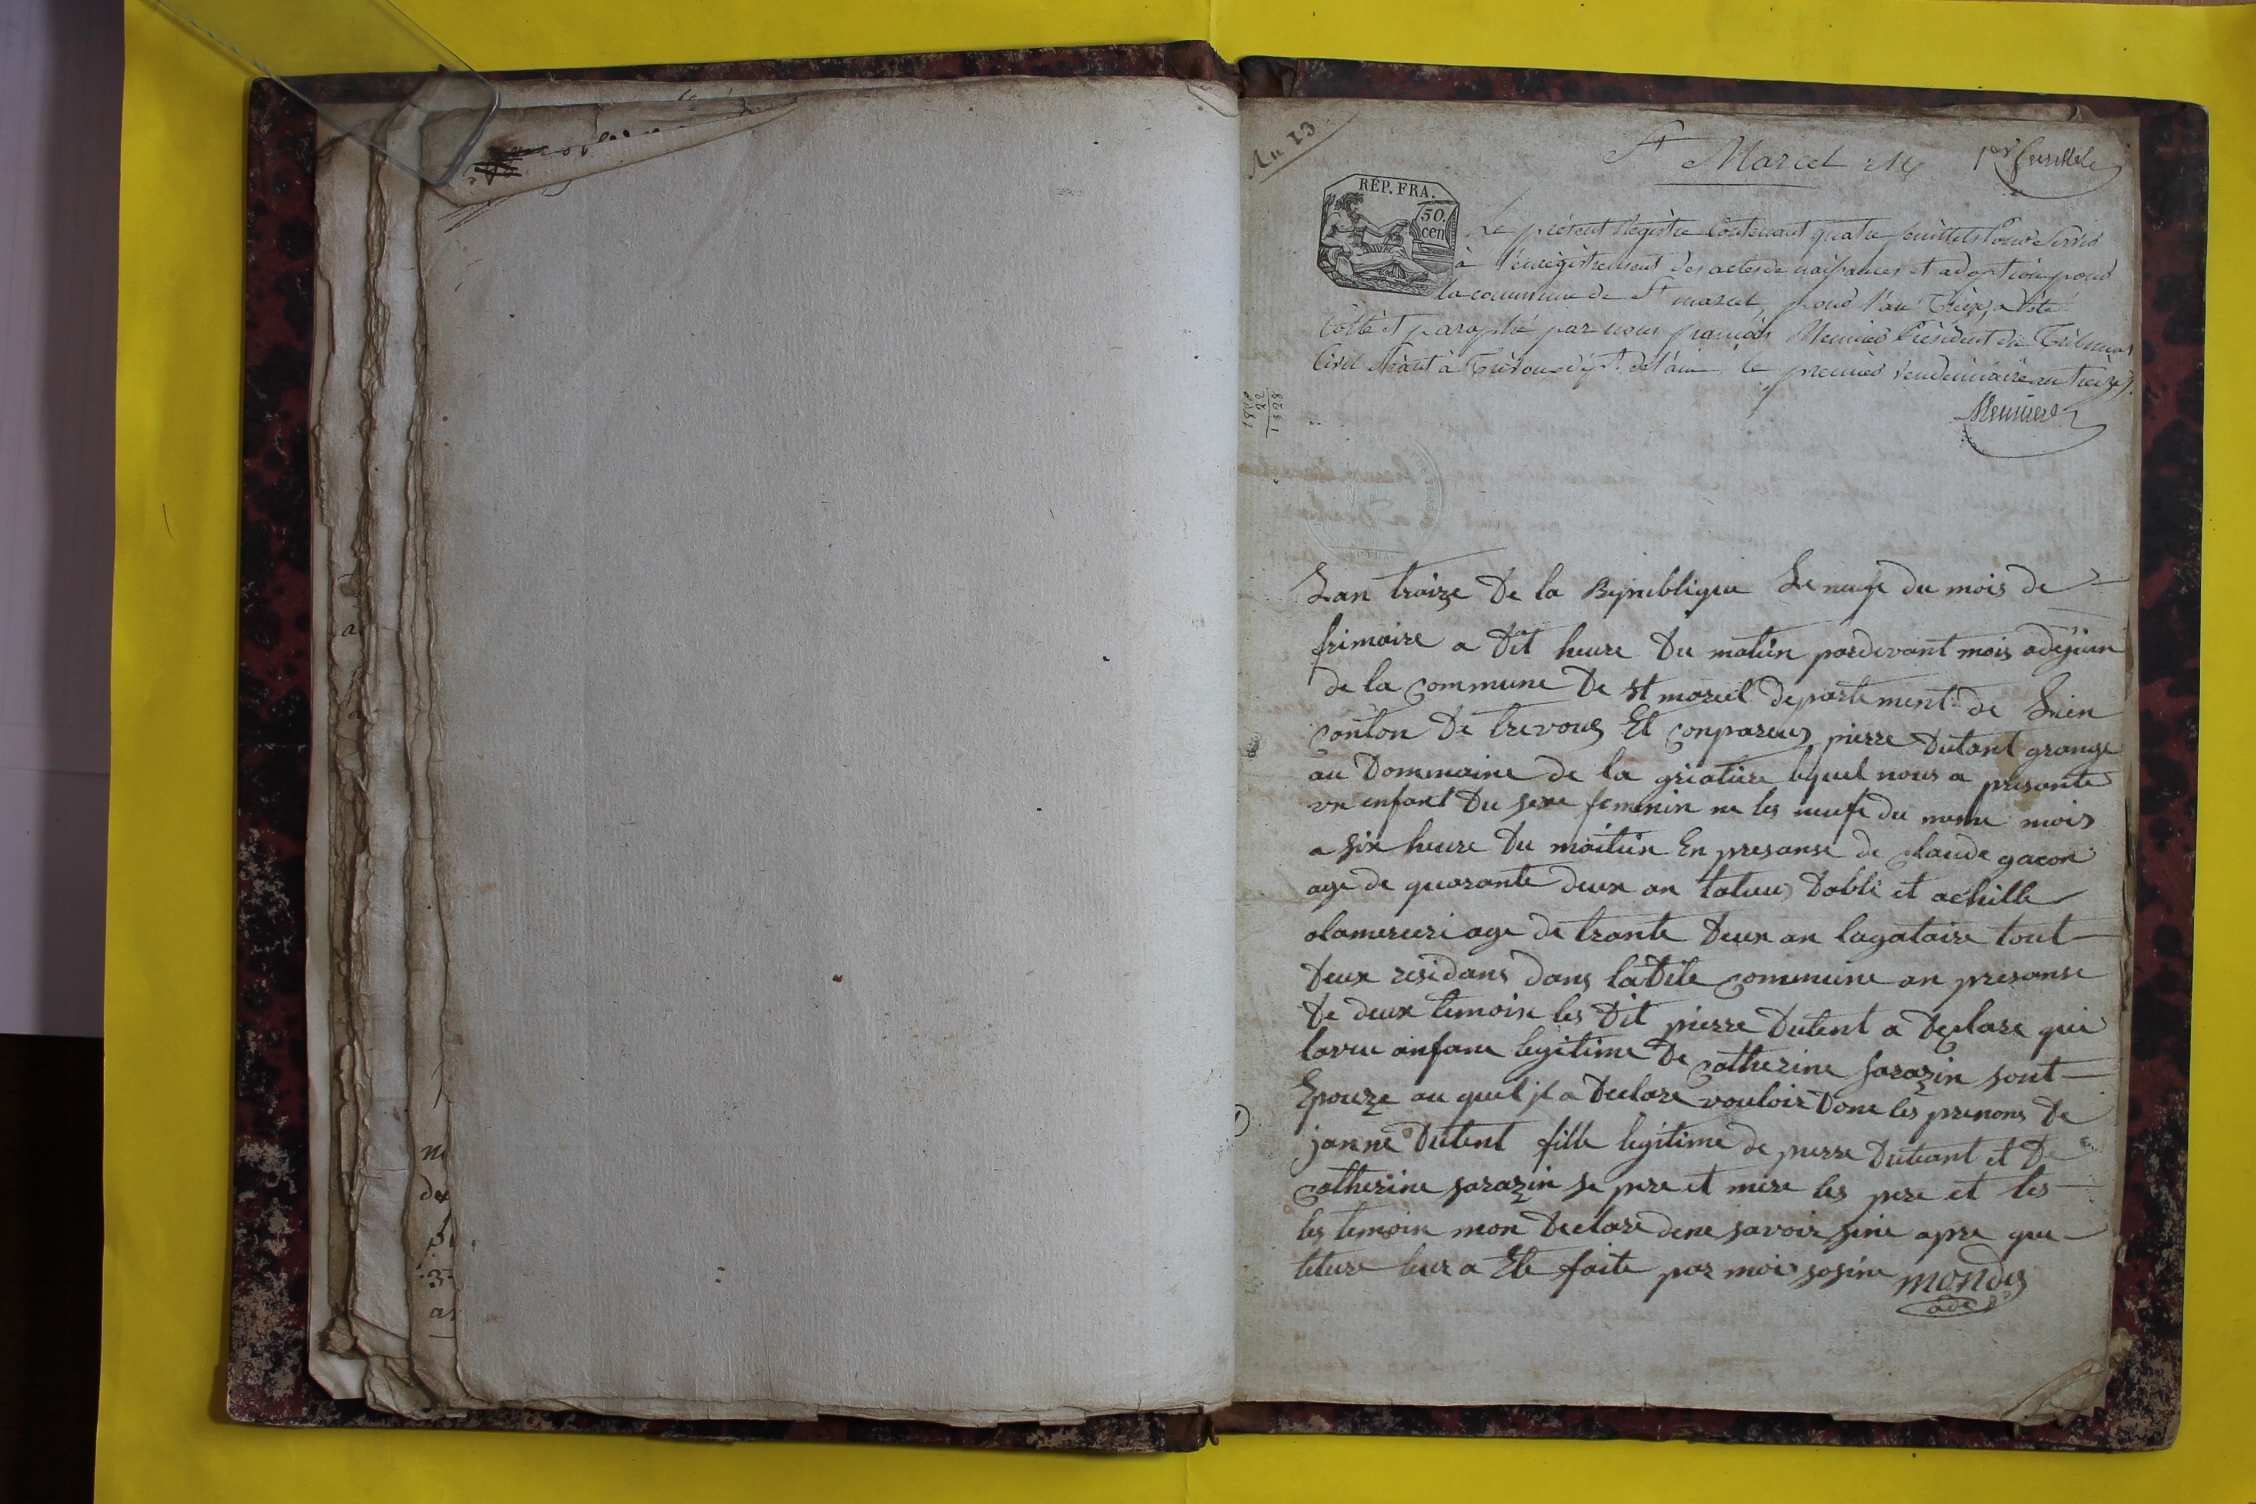 An 13
St Marcel N 1er feuillet
REP. FRA.
50.
cen
Le présent Régistre Contenant quatre feuillets Pour Servir
à l'enrégistrement des actes de naissances et adoption pour
la commune de St marcel, pour l'an Treize, a été
Cotté et paraphé par nous françois Meunier Président du Tribunal
Civil séant à Trévoux dépt. de l'ain le premier vendémiaire an treize.
Meunier
1828
Lan traize De la Republique Le neuf du mois de
frimaire a Dit heure Du matin pardevant mois adejoin
de la Commune De st marcel departement de Lien
conton De trevoux Et conpareus pierre Dutant grange
au Dommaine de la griatiere lequel nous a presante
un enfant Du sexe feminin ne les neufe du meme mois
a six heure Du maitin En presanse de claude gacon
age de quarante deux an Dabli et achille
olamerceri age de trante Deux an lagataire tout
Deux residans dans la Dite commune an presanse
De deux temoin les Dit pierre Dutent a Declare qui
laveu anfane legitime De catherine sarazin sont
Epouze au quel jl a Declare vouloir Done les prenons De
janne Dutent fille legitime de pierre Duteant et De
catherine sarazin se pere et mere les pere et les
les temoin mon Declare dene savoir sine apre que
leture leur a Ete faite par moi sosine mondes
ade